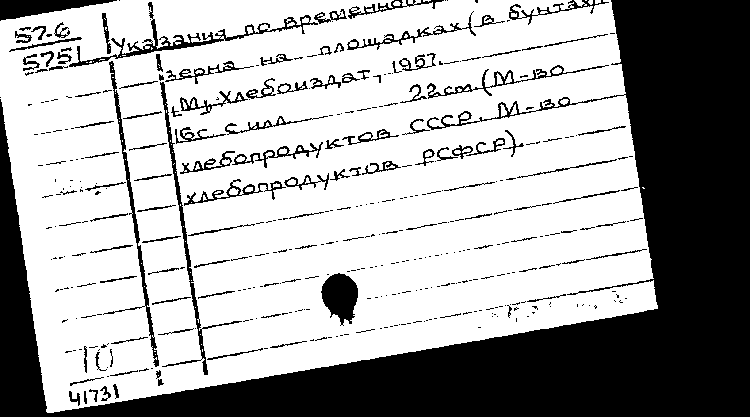 57-6
5751
Указания по временному
зерна на площадках (в бунтах)
[М], Хлебоиздат, 1957.
16с с илл. 22см. (М-во
хлебопродуктов СССР. М-во
хлебопродуктов РСФСР).
10
41731